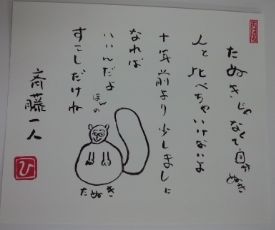 たぬきじゃなくて自分ぬき
人と比べちゃいけないよ
十年前より少しましに
なれば
いいんだよ
ほんの
すこしだけね
斎藤一人
たぬき
ひ